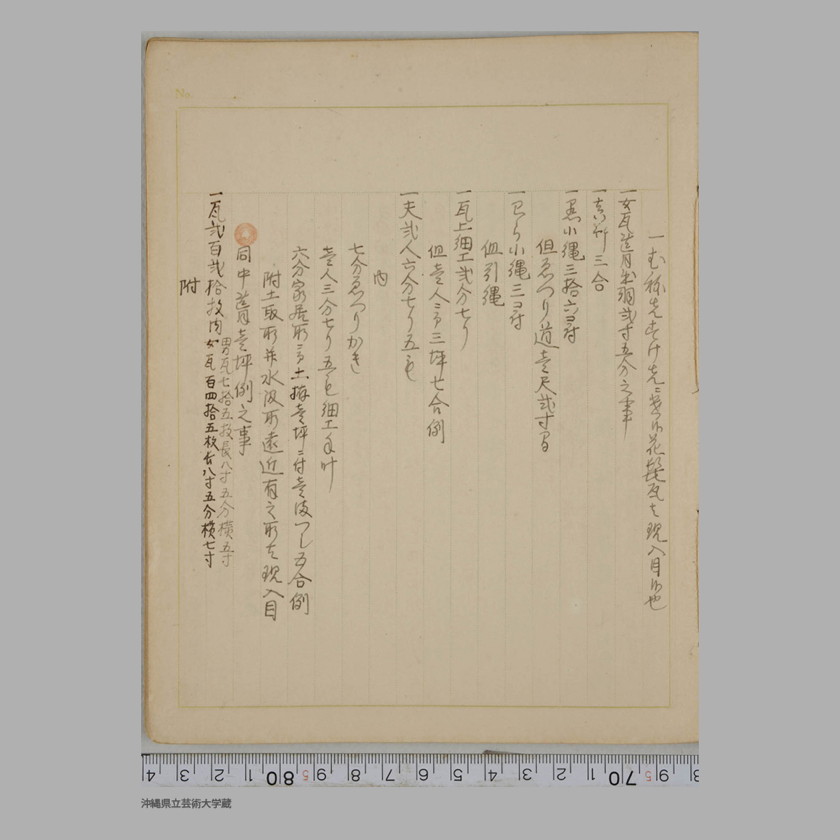 一むね先すけ先ニ葺候花髪瓦者現入目候也
一女瓦葺月出羽弐寸五分之事
一真竹三合
一黒小縄三拾六尋
但ゑつり道壱尺弐寸間
一わら小縄三尋
但引縄
一瓦上細工弐分七り
但壱人ニ而三坪七合例
一夫弐人六分七り五毛
内
七分ゑつりかき
壱人三分七り五毛細工手叶
六分家居取ニ而土拵壱坪ニ付壱俵つし五合例
附土取所并水汲所遠近有之所者現入目
同中葺壱坪例之事
一瓦弐百弐拾枚内
男瓦七拾五枚長八寸五分横五寸
女瓦百四拾五枚長八寸五分横七寸
附
No.
4 3 2 1 80 9 8 7 6 5 4 3 2 1 70 9 8
沖縄県立芸術大学蔵